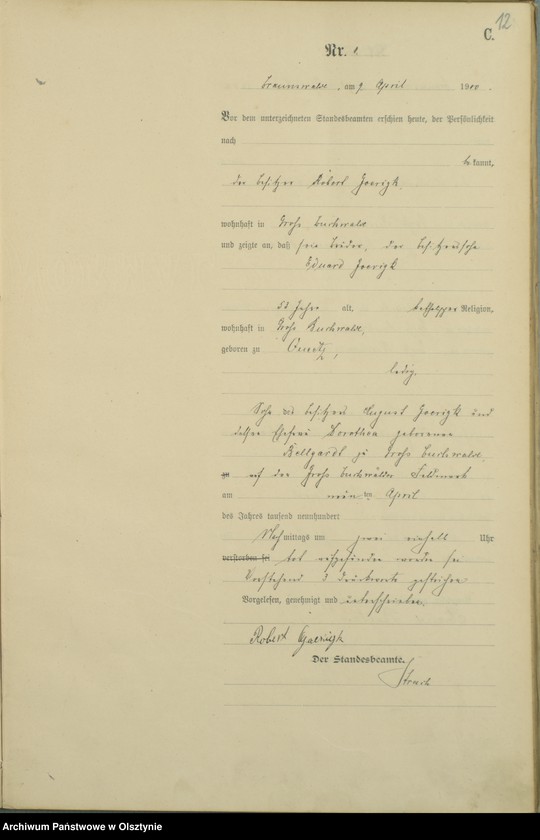 12
C.
Nr.
Braunswalde, am 9 April 1900.
Vor dem unterzeichneten Standesbeamten erschien heute, der Persönlichkeit
nach
bekannt,
der Besitzer Robert Goerigk
wohnhaft in Groß Buchwalde
und zeigte an, daß sein Bruder, der
Eduard Goerigk
Jahre alt, Religion,
wohnhaft in Groß Buchwalde,
geboren zu
ledig,
Sohn des Besitzers August Goerigk und
dessen Ehefrau Dorothea geborenen
zu Groß Buchwalde
zu auf der Groß Buchwalder Feldmark
am neunten April
des Jahres tausend neunhundert
Nachmittags um zwei einhalb Uhr
verstorben sei todt aufgefunden worden sei
Vorstehend 3 Druckworte gestrichen
Vorgelesen, genehmigt und unterschrieben.
Robert Goerigk
Der Standesbeamte.
Archiwum Państwowe w Olsztynie